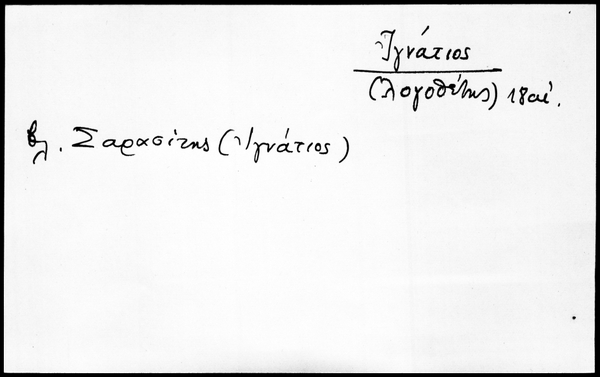 Ἰγνάτιος
(λογοθέτης) 18 αἰ.
βλ. Σαρασίτης (Ἰγνάτιος)